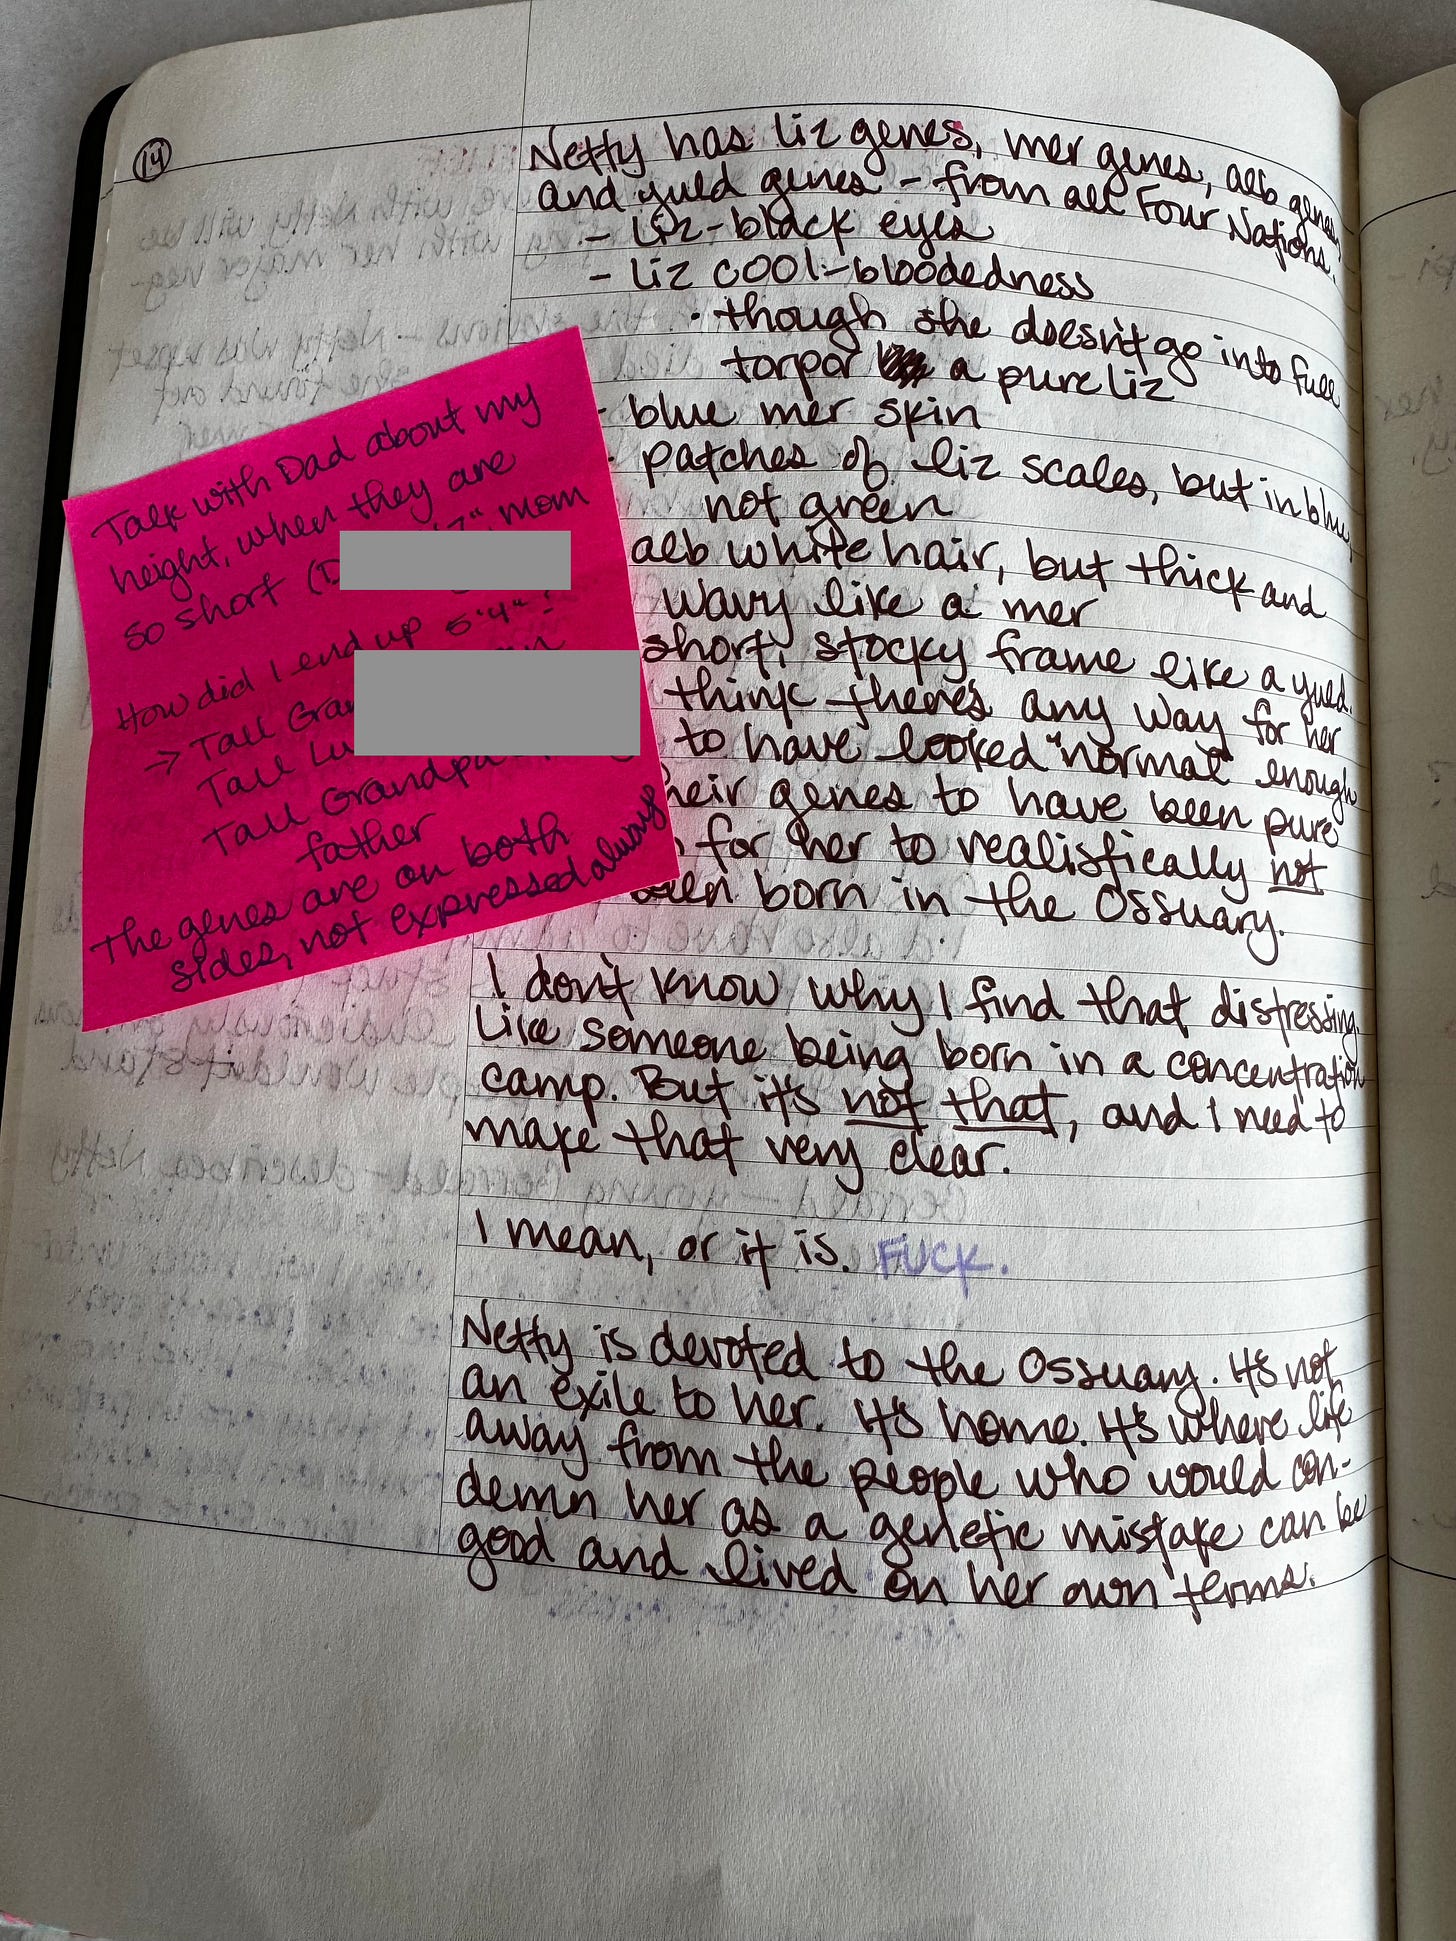 14
Netty has liz genes, mer genes, alb genes,
and yuld genes - from all Four Nations.
- liz-black eyes
- liz cool-bloodedness
· though she doesn't go into full
torpor a pure liz
- blue mer skin
· patches of liz scales, but in blue,
not green
alb white hair, but thick and
wavy like a mer
short, stocky frame like a yuld.
think there's any way for her
to have looked "normal" enough
their genes to have been pure
for her to realistically not
been born in the Ossuary.
I don't know why I find that distressing.
Like someone being born in a concentration
camp. But it's not that, and I need to
make that very clear.
I mean, or it is. FUCK.
Netty is devoted to the Ossuary. It's not
an exile to her. It's home. It's where life
away from the people who would con-
demn her as a genetic mistake can be
good and lived on her own terms.
Talk with Dad about my
height, when they are
so short ( mom
How did I end up 5'4"?
→ Tall
Tall
Tall Grandpa
father
The genes are on both
sides, not expressed always